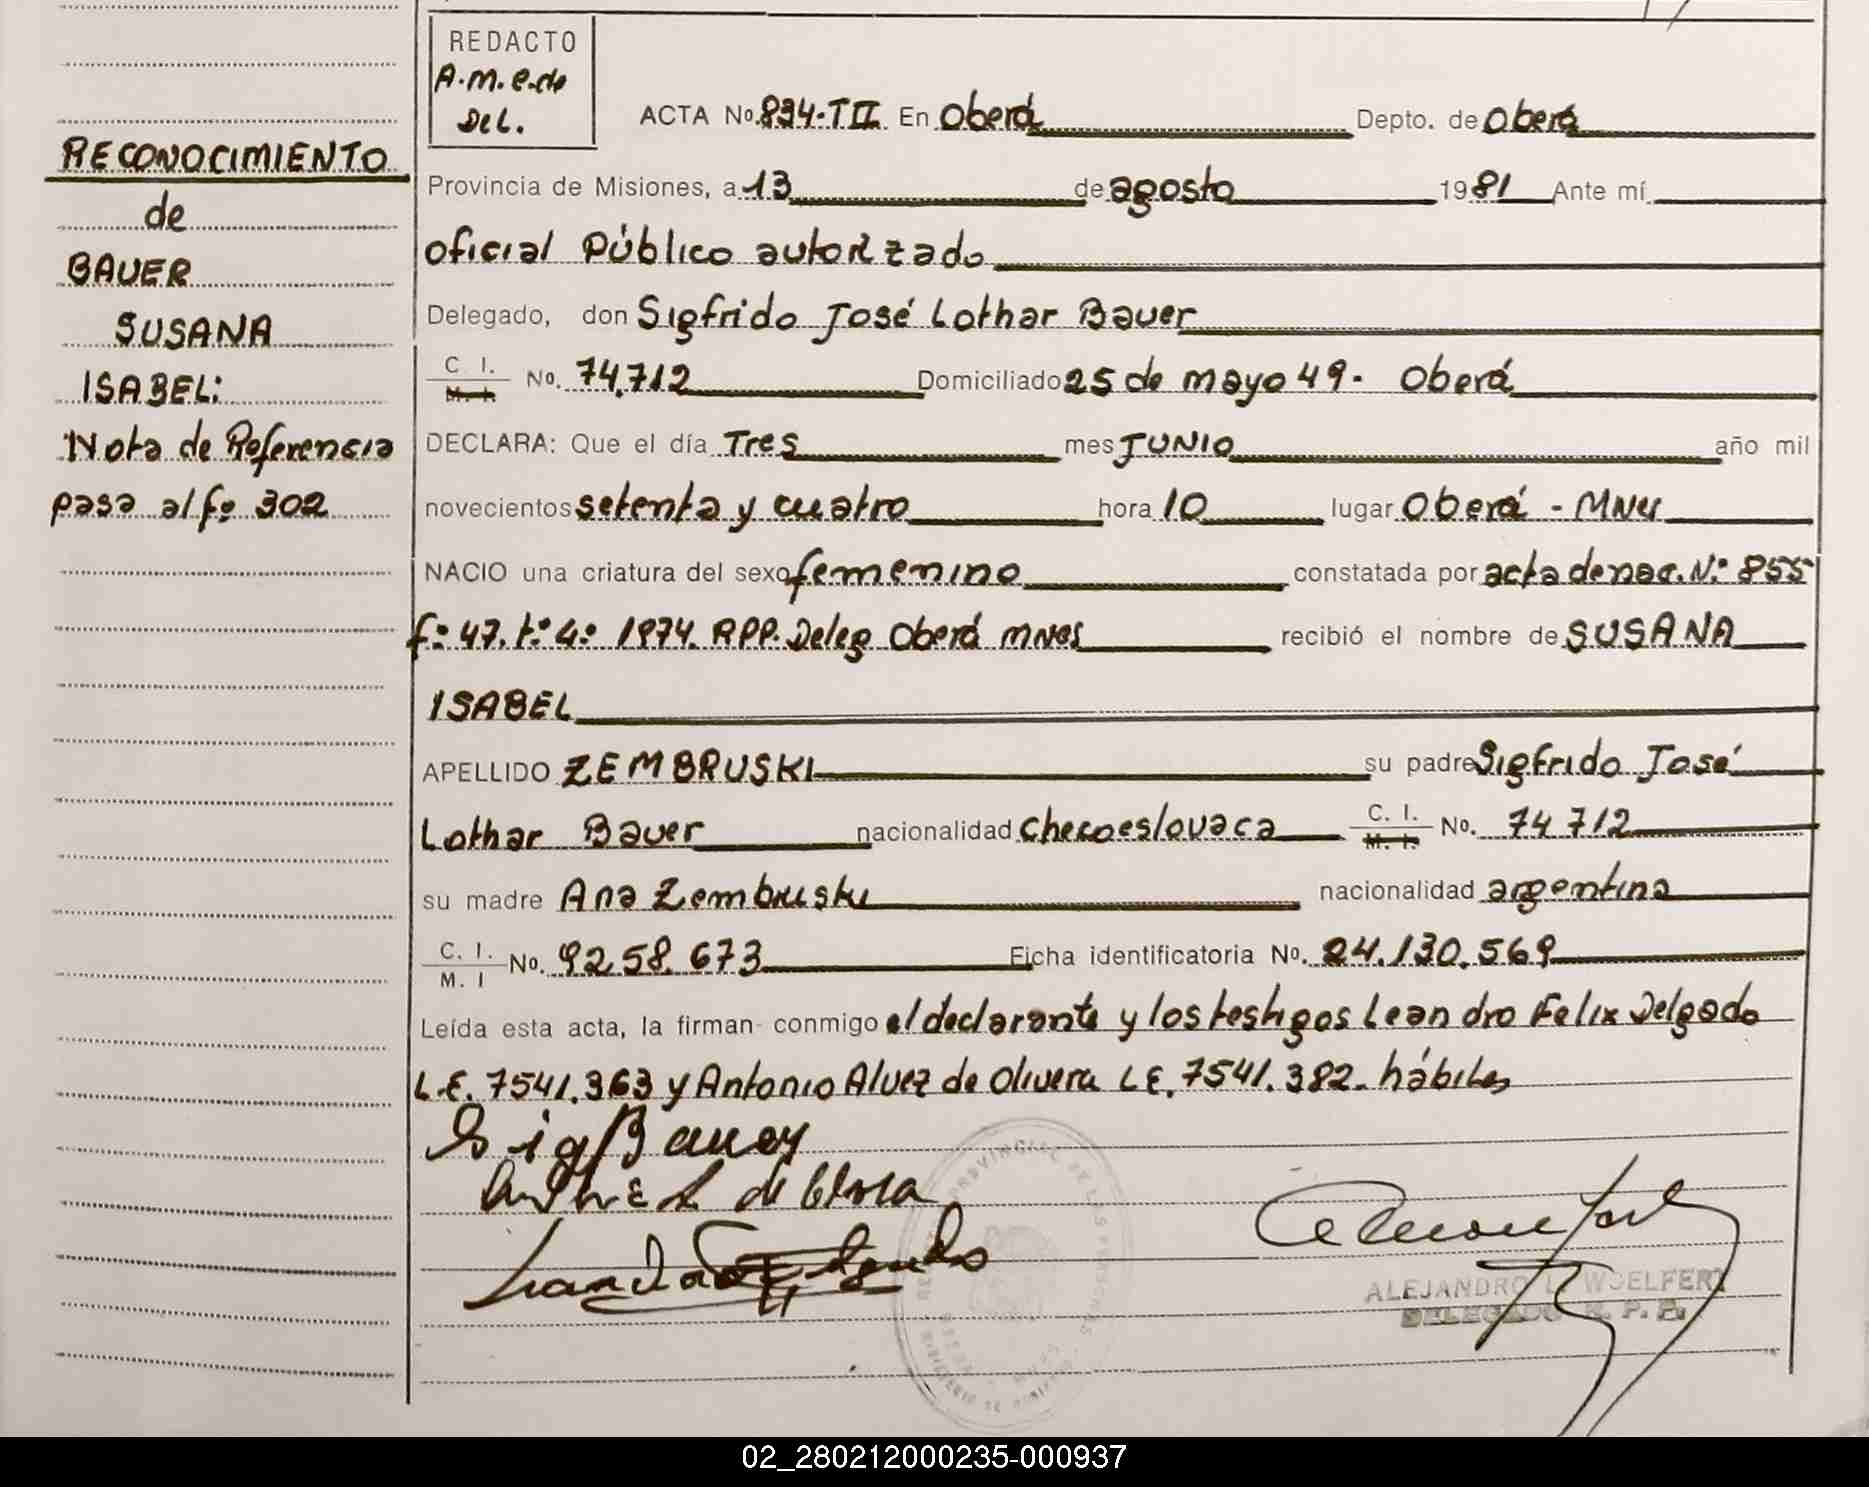 REDACTO
A.M. e.do
Del.
ACTA No. 834-TII En Oberá Depto. de Oberá
Provincia de Misiones, a 13 de agosto 1981 Ante mí
oficial Público autorizado
Delegado, don Sigfrido José Lothar Bauer
C. I. M. I. No. 74.712 Domiciliado 25 de mayo 49. Oberá
DECLARA: Que el día Tres mes JUNIO año mil
novecientos setenta y cuatro hora 10 lugar Oberá - MNes
NACIO una criatura del sexo femenino constatada por acta de nac. Nº 855
fº 47. tº 4º 1974. RPP. Deleg Oberá MNes recibió el nombre de SUSANA
ISABEL
APELLIDO ZEMBRUSKI su padre Sigfrido José
Lothar Bauer nacionalidad checoeslovaca C. I. M. I. No. 74 712
su madre Ana Zembruski nacionalidad argentina
C. I. M. I No. 9258.673 Ficha identificatoria No. 24.130.569
Leída esta acta, la firman conmigo el declarante y los testigos Leandro Felix Delgado
L.E. 7541.363 y Antonio Alvez de Olivera L.E. 7541.382. hábiles
Sig Bauer
ALEJANDRO L. WOELFERT
DELEGADO R. P. P.
RECONOCIMIENTO
de
BAUER
SUSANA
ISABEL:
Nota de Referencia
pasa al fº 302
02_280212000235-000937